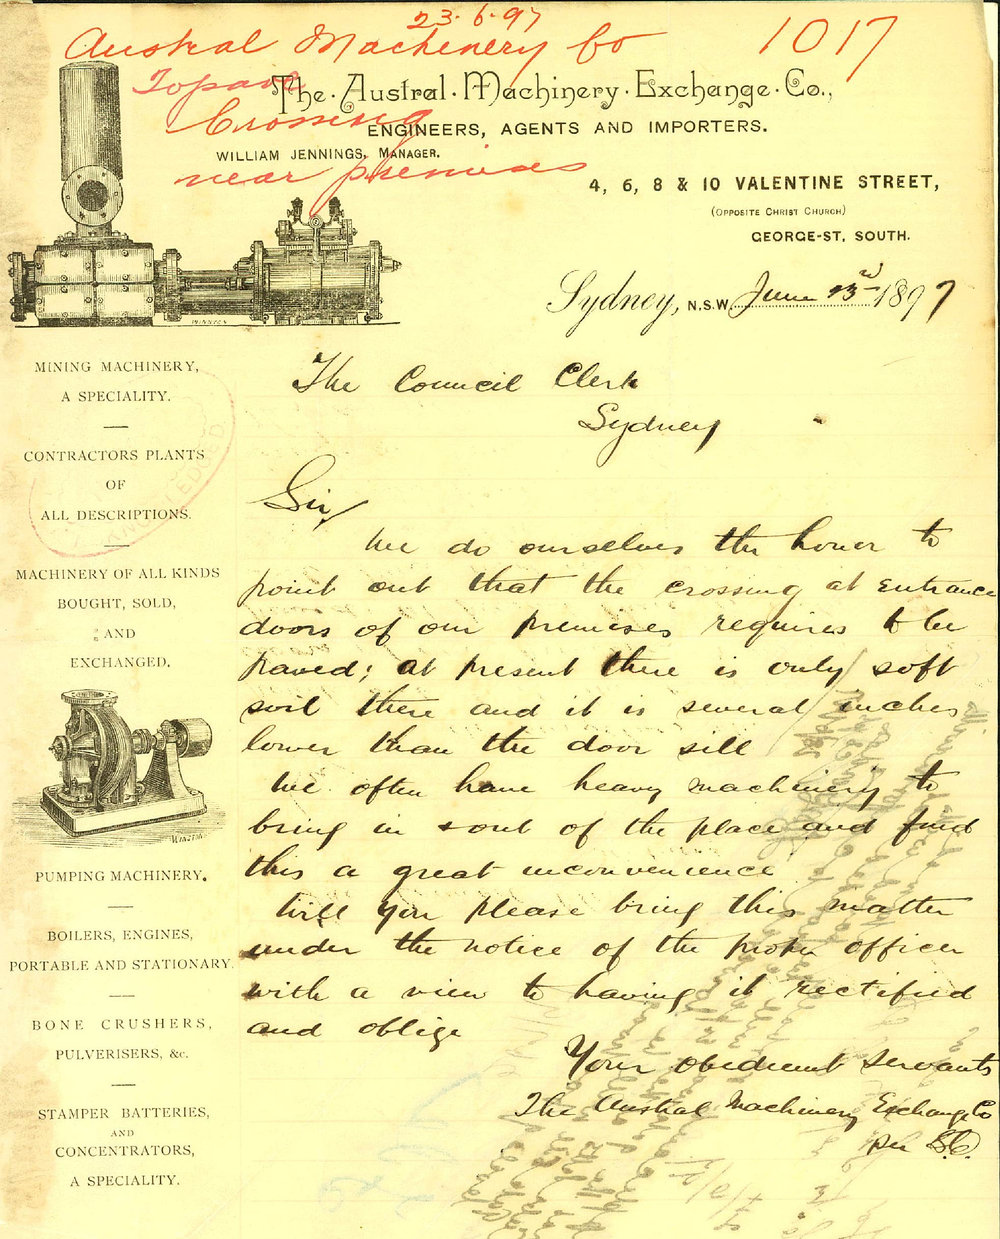 23.6.97
Austral Machinery Co 1017
To pave
Crossing
near premises
The Austral Machinery Exchange Co.,
ENGINEERS, AGENTS AND IMPORTERS.
WILLIAM JENNINGS, MANAGER.
4, 6, 8 & 10 VALENTINE STREET,
(OPPOSITE CHRIST CHURCH)
GEORGE-ST, SOUTH.
Sydney, N.S.W. June 23rd 1897
MINING MACHINERY,
A SPECIALITY.
CONTRACTORS PLANTS
OF
ALL DESCRIPTIONS.
MACHINERY OF ALL KINDS
BOUGHT, SOLD,
AND
EXCHANGED.
PUMPING MACHINERY.
BOILERS, ENGINES,
PORTABLE AND STATIONARY.
BONE CRUSHERS,
PULVERISERS, &c.
STAMPER BATTERIES,
AND
CONCENTRATORS,
A SPECIALITY.
The Council Clerk
Sydney
Sir,
We do ourselves the honor to
point out that the crossing at entrance
doors of our premises requires to be
paved; at present there is only soft
soil there and it is several inches
lower than the door sill
We often have heavy machinery to
bring in & out of the place and find
this a great inconvenience
Will you please bring this matter
under the notice of the proper officer
with a view to having it rectified
and oblige
Your obedient servants
The Austral Machinery Exchange Co
per